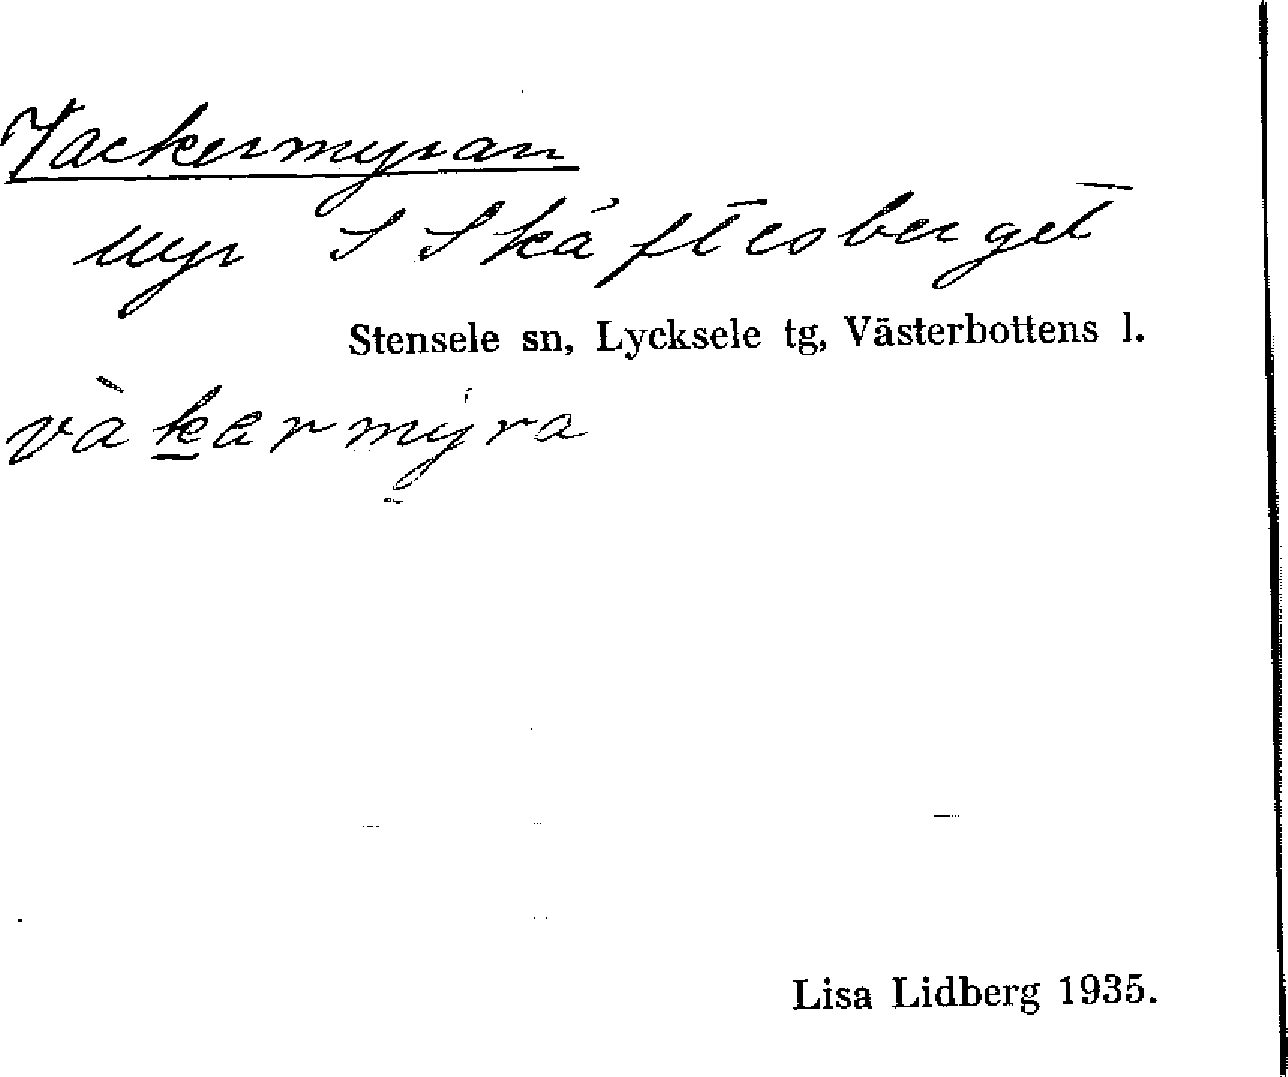 Vackermyran
myr S Skåftesberget
Stensele sn, Lycksele tg, Västerbottens l.
vàkarmýra
Lisa Lidberg 1935.